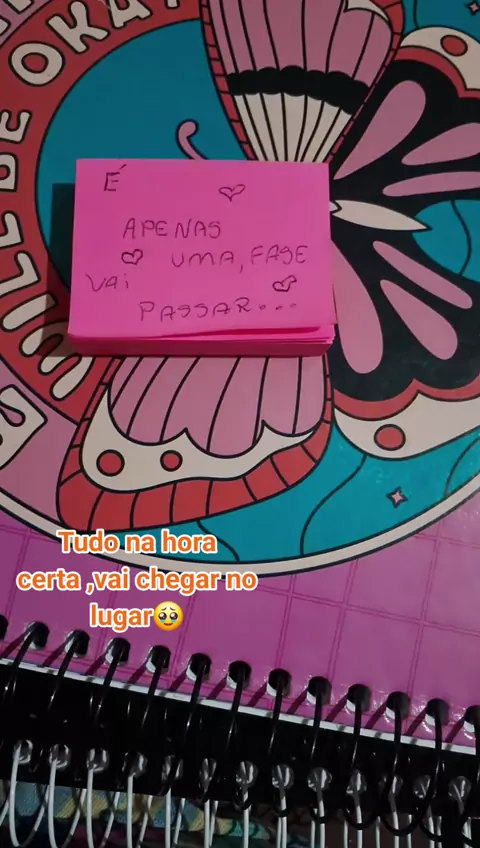 WILL BE OKAY
É
APENAS
UMA, FASE
VAi
PASSAR...
Tudo na hora
certa ,vai chegar no
lugar🥹